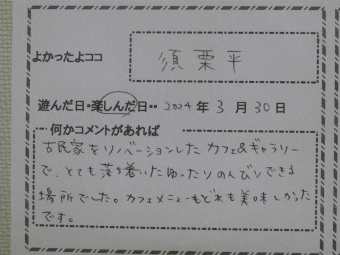 よかったよココ 須栗平
遊んだ日・楽しんだ日・・ 2024年3月30日
何かコメントがあれば
古民家をリノベーションしたカフェ&ギャラリー
で、とても落ち着いたゆったりのんびりできる
場所でした。カフェメニューもどれも美味しかった
です。